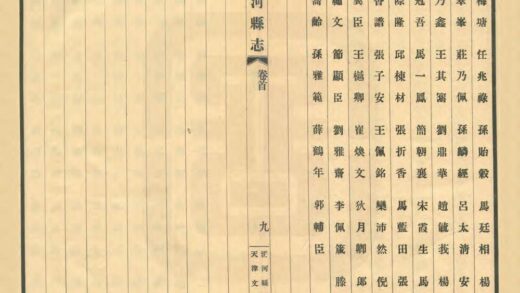 梅塘 任兆祿 孫貽穀 馬廷相 楊
峯 莊乃佩 孫麟經 呂太清 安
乃鑫 王其寯 劉鼎華 趙毓莪 楊
冠吾 馬一鳳 簡朝襄 宋霞生 馬
際隆 邱棟材 張折香 馬藍田 張
譜 張子安 王佩銘 欒沛然 倪
臣 王樾卿 崔煥文 狄月卿 郎
文 節顯臣 劉雅齋 李佩箴 滕
齡 孫雅範 薛鶴年 郭輔臣
河縣志 卷首 九
河縣
天津文